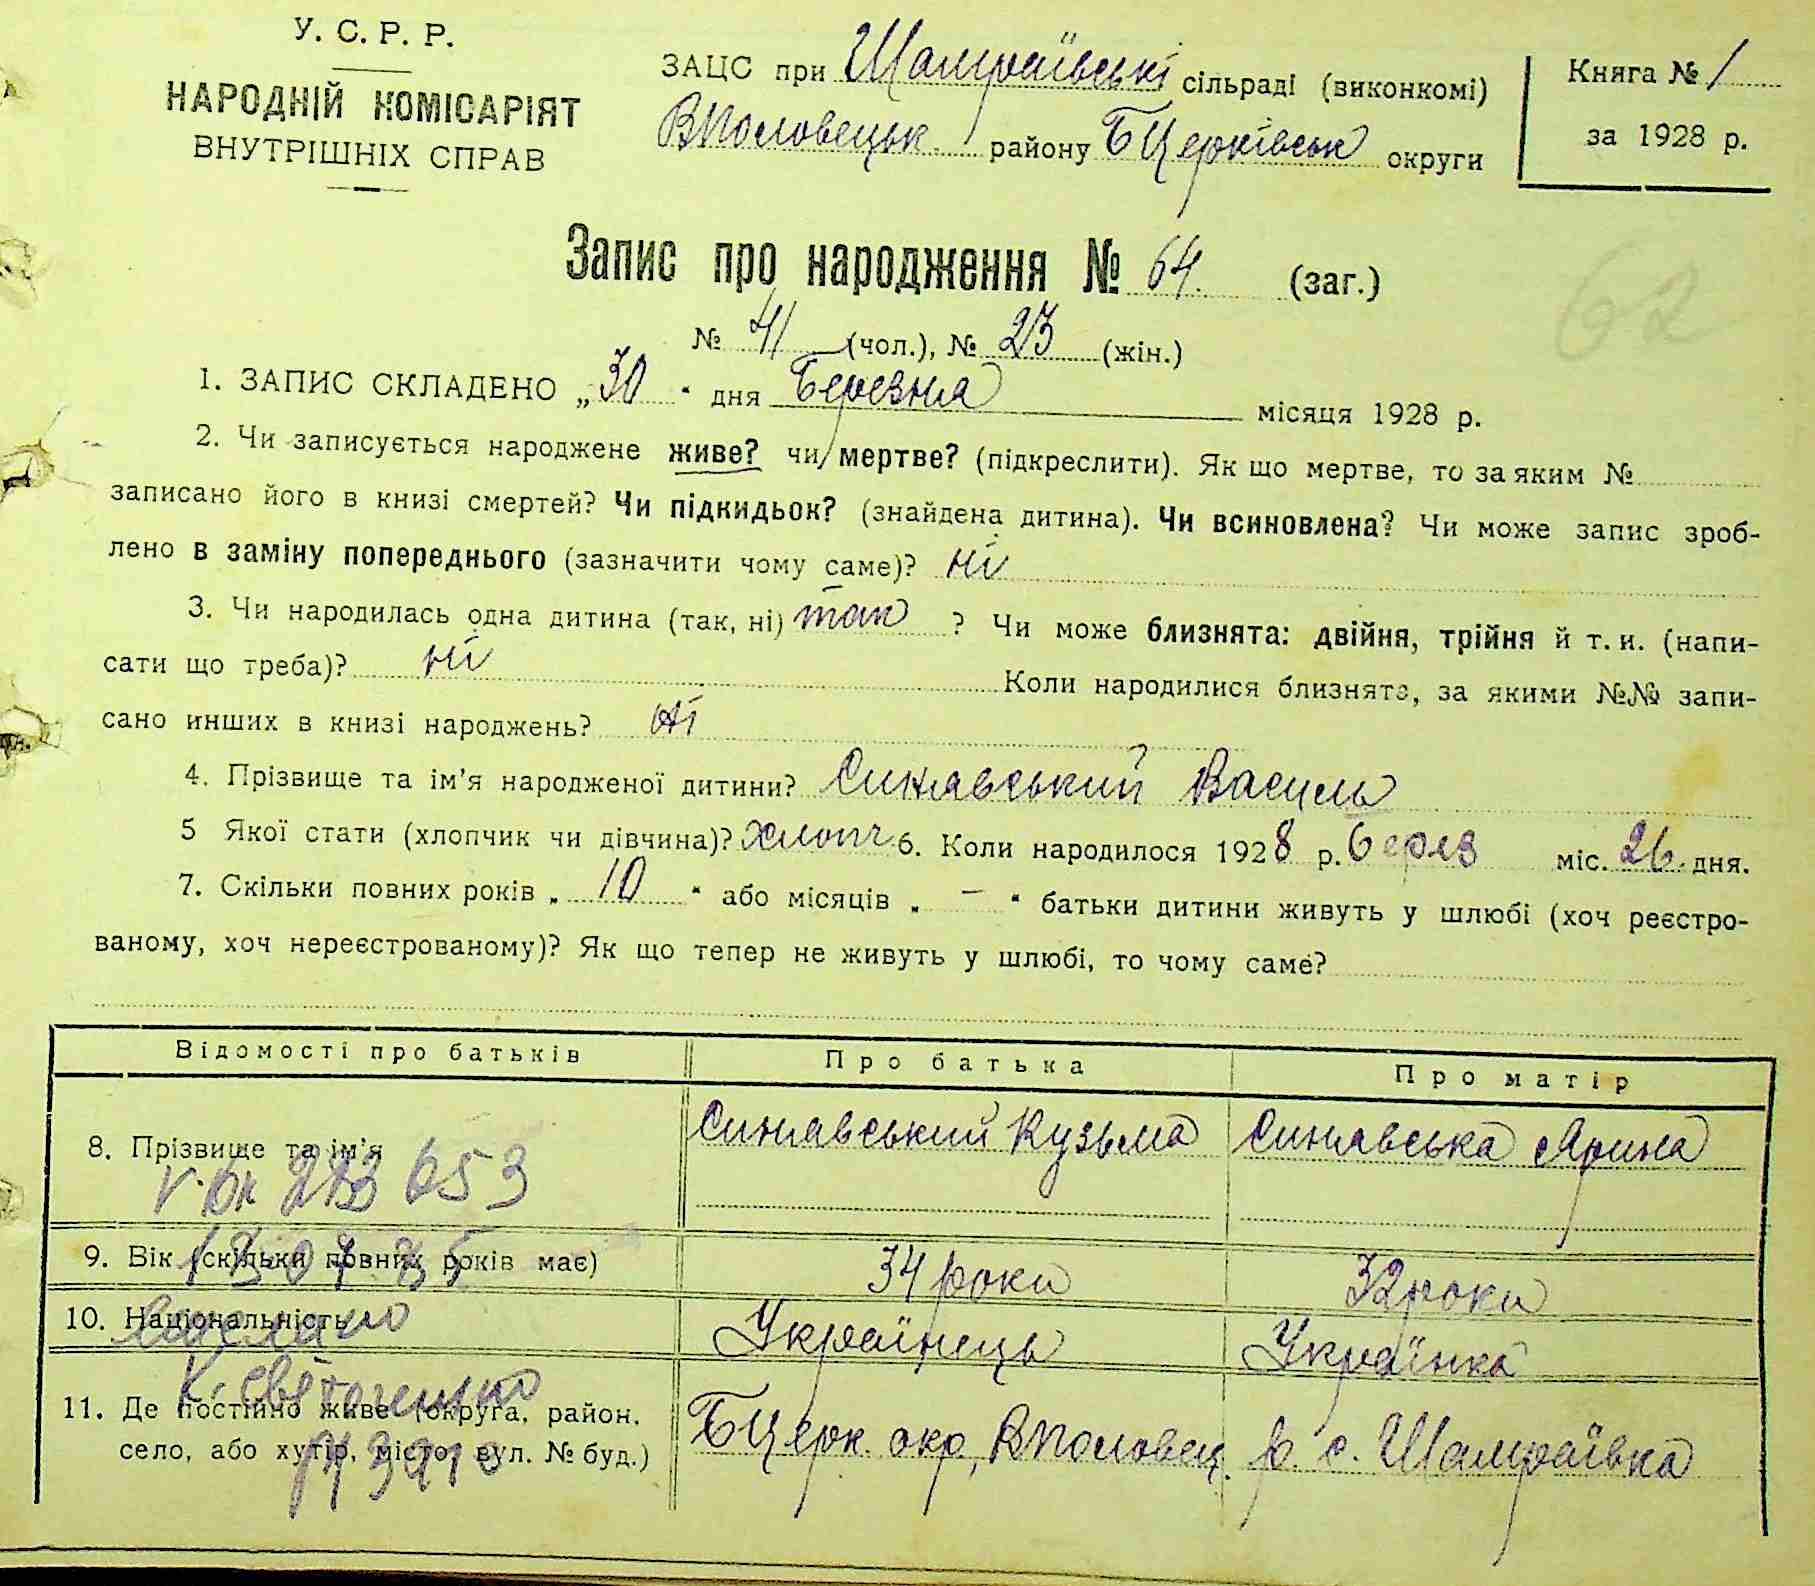 У. С. Р. Р.
НАРОДНІЙ КОМІСАРІЯТ
ВНУТРІШНІХ СПРАВ
ЗАЦС при Шамраївські сільраді (виконкомі)
ВПоловецьк району БЦерківськ округи
Книга № 1
за 1928 р.
Запис про народження № 64 (заг.)
62
№ 41 (чол.), № 23 (жін.)
1. ЗАПИС СКЛАДЕНО „30“ дня Березня місяця 1928 р.
2. Чи записується народжене живе? чи мертве? (підкреслити). Як що мертве, то за яким №
записано його в книзі смертей? Чи підкидьок? (знайдена дитина). Чи всиновлена? Чи може запис зроб-
лено в заміну попереднього (зазначити чому саме)? ні
3. Чи народилась одна дитина (так, ні) так ? Чи може близнята: двійня, трійня й т. и. (напи-
сати що треба)? ні Коли народилися близнята, за якими №№ запи-
сано инших в книзі народжень? ні
4. Прізвище та ім'я народженої дитини? Синявський Василь
5 Якої стати (хлопчик чи дівчина)? хлопч 6. Коли народилося 1928 р. берез міс. 26 дня.
7. Скільки повних років „10“ або місяців „—“ батьки дитини живуть у шлюбі (хоч реєстро-
ваному, хоч нереєстрованому)? Як що тепер не живуть у шлюбі, то чому саме?
Відомості про батьків Про батька Про матір
8. Прізвище та ім'я Синявський Кузьма Синявська Ярина
9. Вік (скільки повних років має) 34 роки 32 роки
10. Національність Українець Українка
11. Де постійно живе (округа, район,
село, або хутір, місто, вул. № буд.) БЦерк. окр, ВПоловец. р. с. Шамраївка